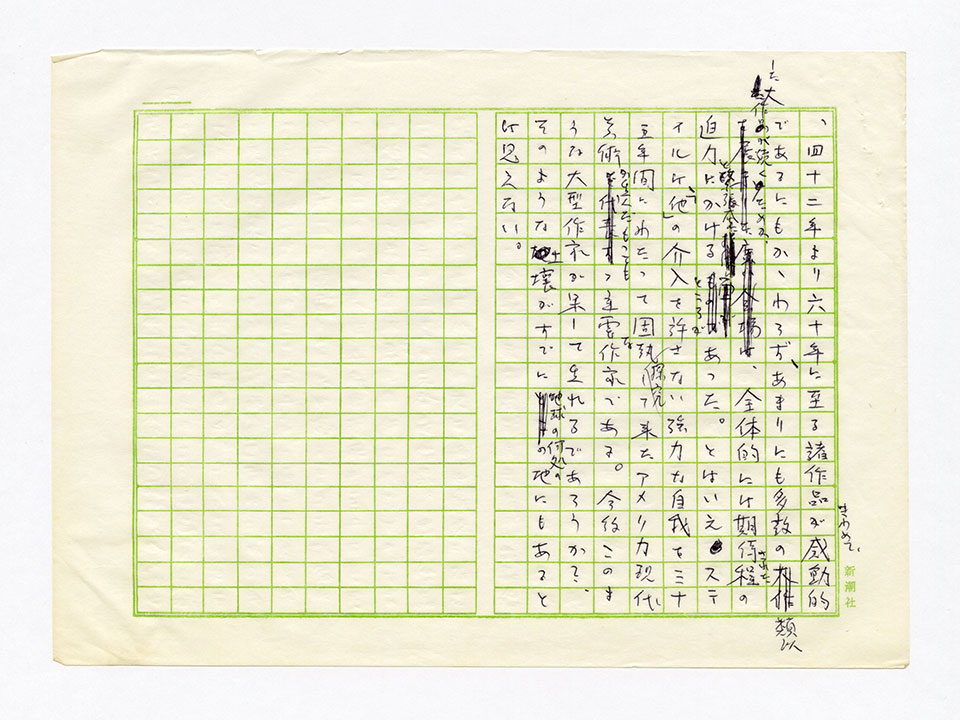 新潮社
、四十二年より六十年に至る諸作品がきわめて、感動的
であるにもかゝわらず、あまりにも多数の類似
した大作品が続くためか、全体的には期待された程の
迫力にかけるところがあった。とはいえステ
イルは「他」の介入を許さない強力な自我を三十
五年間にわたって固執探究して来たアメリカ現代
芸術 もっとも主要な作家である。今後このよ
うな大型作家が果して生れるであろうか?、
そのような土壌がすでに地球の何処の地にもあると
は見えない。